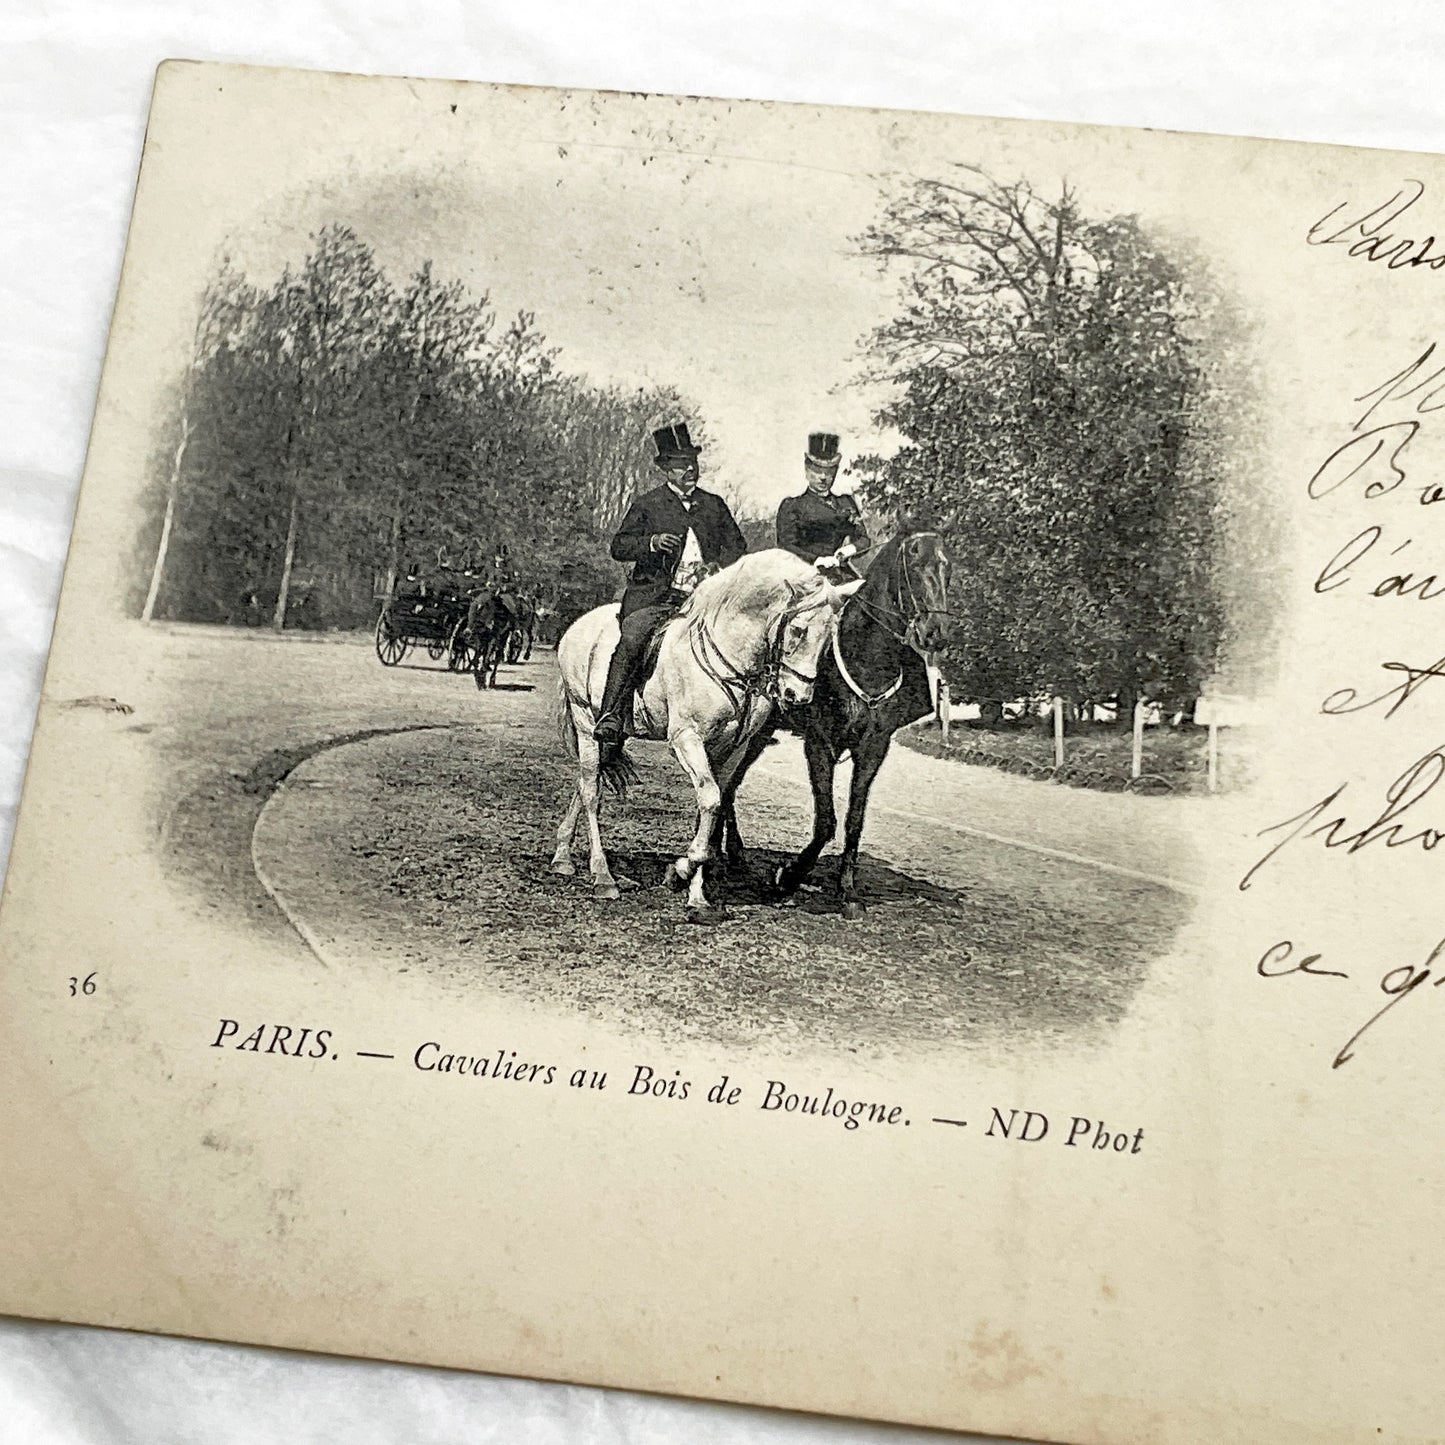 Paris
l'a
et
pho
ce q
36
PARIS. — Cavaliers au Bois de Boulogne. — ND Phot